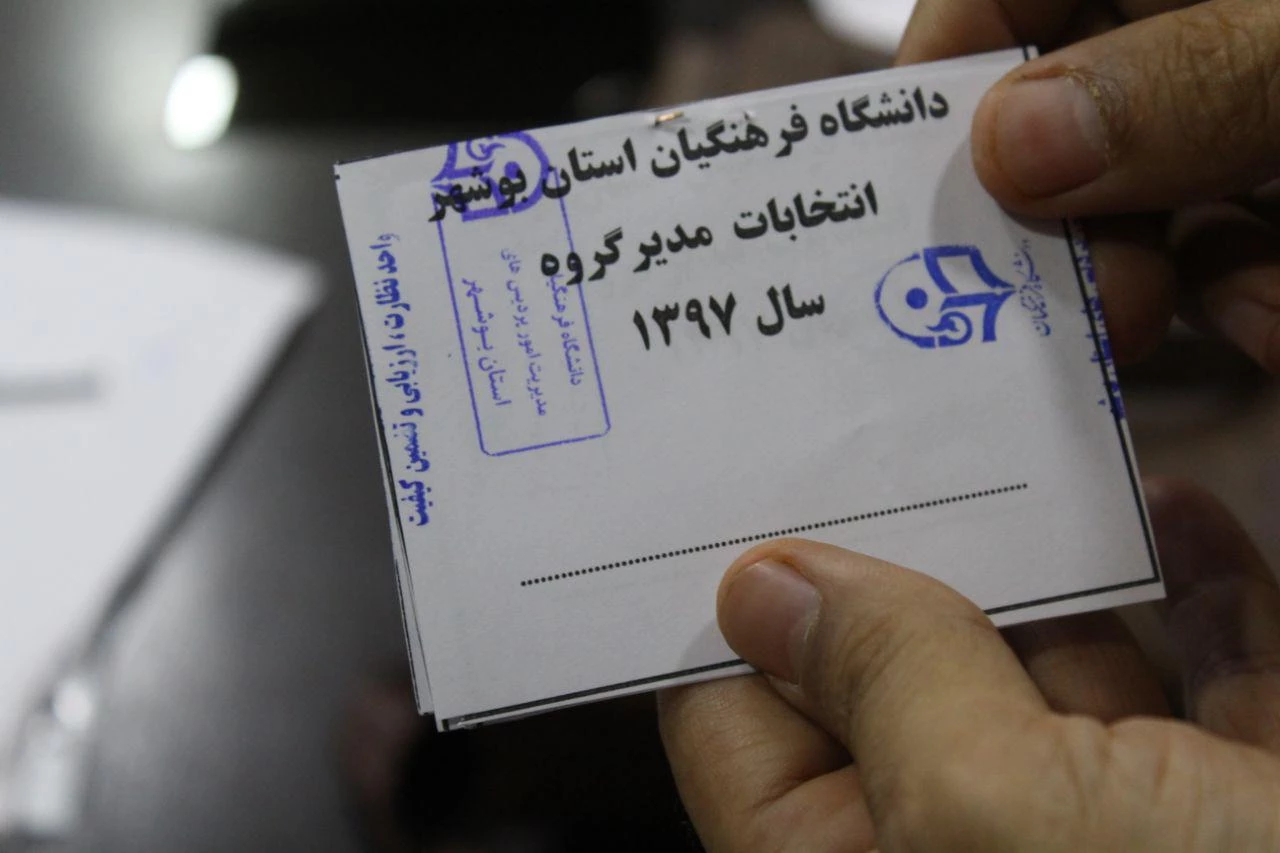 دانشگاه فرهنگیان استان بوشهر
انتخابات مدیر گروه
سال ۱۳۹۷
دانشگاه فرهنگیان
دانشگاه فرهنگیان
مدیریت امور پردیس های
استان بوشهر
واحد نظارت، ارزیابی و تضمین کیفیت